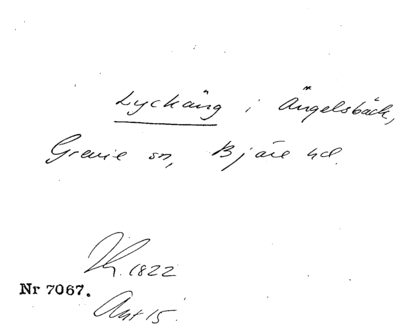 Lyckäng i Ängelsbäck,
Grevie sn, Bjäre hd.
1822
Nr 7067.
Ant 15.